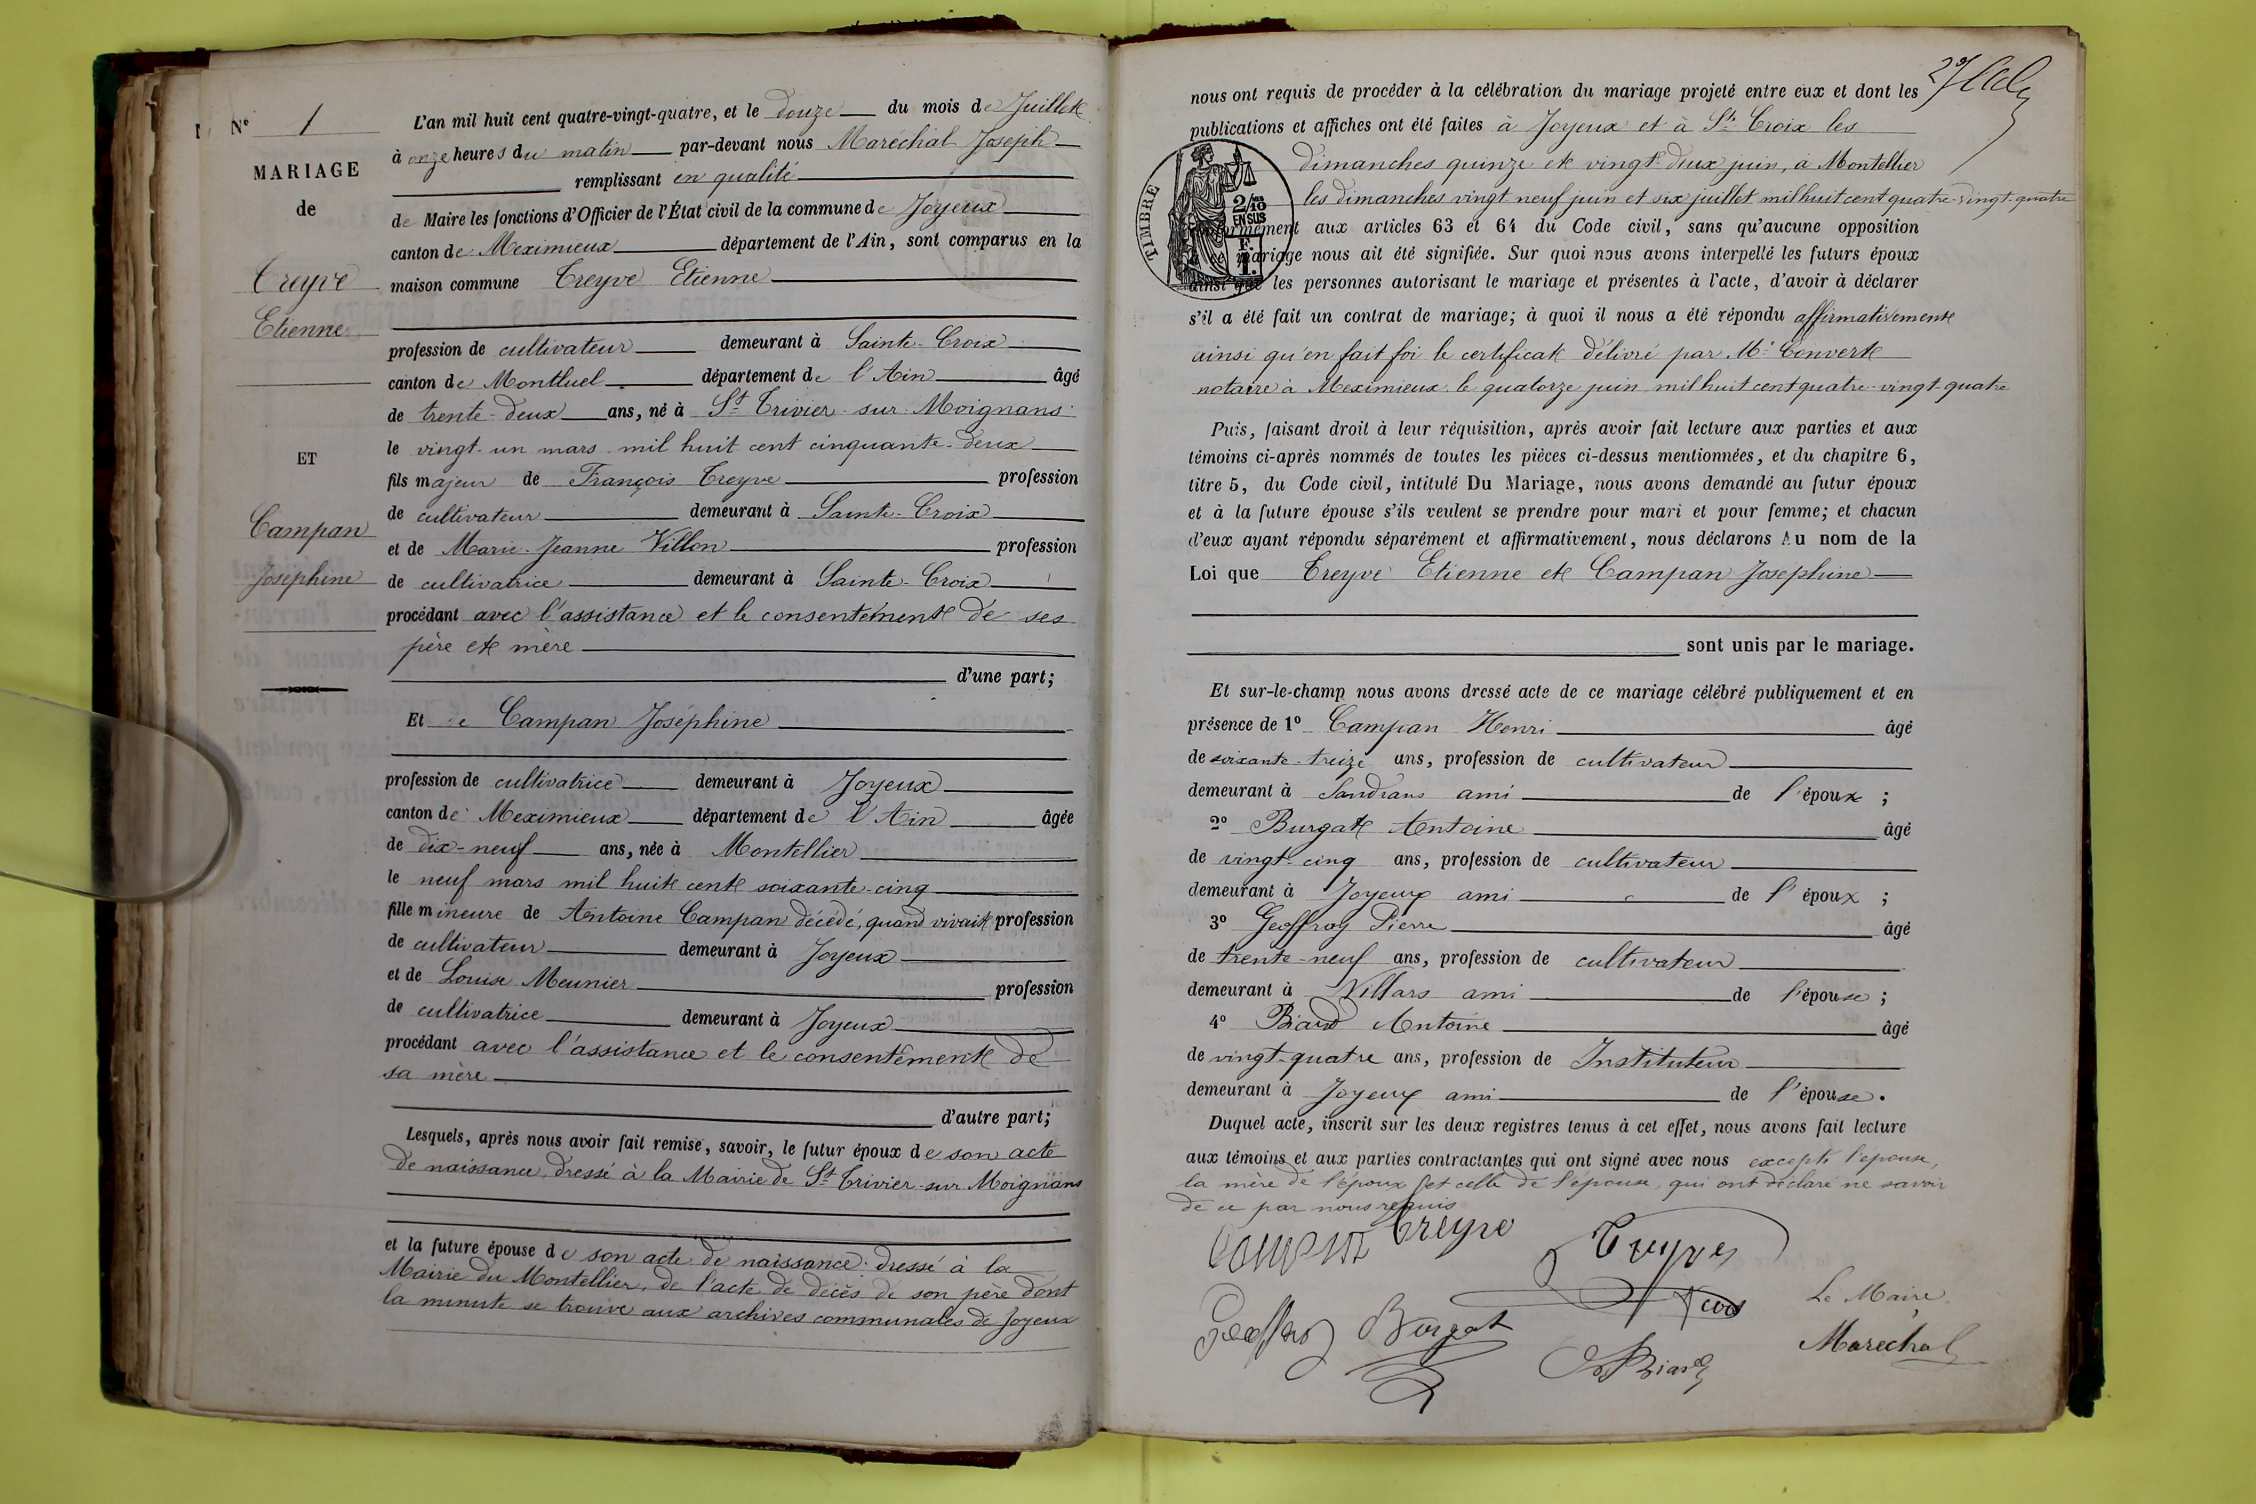 N° 1
MARIAGE
de
Treyve
Etienne
ET
Campan
Joséphine
L'an mil huit cent quatre-vingt-quatre, et le douze du mois de Juillet
à onze heures du matin par-devant nous Maréchal Joseph
remplissant en qualité
de Maire les fonctions d'Officier de l'État civil de la commune de Joyeux
canton de Meximieux département de l'Ain, sont comparus en la
maison commune Treyve Etienne
profession de cultivateur demeurant à Sainte-Croix
canton de Montluel département de l'Ain âgé
de trente-deux ans, né à St Trivier-sur-Moignans
le vingt-un mars mil huit cent cinquante-deux
fils majeur de François Treyve profession
de cultivateur demeurant à Sainte-Croix
et de Marie-Jeanne Villon profession
de cultivatrice demeurant à Sainte-Croix
procédant avec l'assistance et le consentement de ses
père et mère
d'une part;
Et de Campan Joséphine
profession de cultivatrice demeurant à Joyeux
canton de Meximieux département de l'Ain âgée
de dix-neuf ans, née à Montellier
le neuf mars mil huit cent soixante-cinq
fille mineure de Antoine Campan décédé, quand vivait profession
de cultivateur demeurant à Joyeux
et de Louise Meunier profession
de cultivatrice demeurant à Joyeux
procédant avec l'assistance et le consentement de
sa mère
d'autre part;
Lesquels, après nous avoir fait remise, savoir, le futur époux de son acte
de naissance dressé à la Mairie de St Trivier-sur-Moignans
et la future épouse de son acte de naissance dressé à la
Mairie du Montellier, de l'acte de décès de son père dont
la minute se trouve aux archives communales de Joyeux
nous ont requis de procéder à la célébration du mariage projeté entre eux et dont les
publications et affiches ont été faites à Joyeux et à Ste Croix les
dimanches quinze et vingt-deux juin, à Montellier
les dimanches vingt neuf juin et six juillet mil huit cent quatre-vingt-quatre
TIMBRE
2/10
EN SUS
F.
1.
conformément aux articles 63 et 64 du Code civil, sans qu'aucune opposition
à ce mariage nous ait été signifiée. Sur quoi nous avons interpellé les futurs époux
ainsi que les personnes autorisant le mariage et présentes à l'acte, d'avoir à déclarer
s'il a été fait un contrat de mariage; à quoi il nous a été répondu affirmativement
ainsi qu'en fait foi le certificat délivré par Me Convert
notaire à Meximieux le quatorze juin mil huit cent quatre-vingt-quatre
Puis, faisant droit à leur réquisition, après avoir fait lecture aux parties et aux
témoins ci-après nommés de toutes les pièces ci-dessus mentionnées, et du chapitre 6,
titre 5, du Code civil, intitulé Du Mariage, nous avons demandé au futur époux
et à la future épouse s'ils veulent se prendre pour mari et pour femme; et chacun
d'eux ayant répondu séparément et affirmativement, nous déclarons Au nom de la
Loi que Treyve Etienne et Campan Joséphine
sont unis par le mariage.
Et sur-le-champ nous avons dressé acte de ce mariage célébré publiquement et en
présence de 1° Campan Henri âgé
de soixante-treize ans, profession de cultivateur
demeurant à Sandrans ami de l'époux;
2° Burgat Antoine âgé
de vingt-cinq ans, profession de cultivateur
demeurant à Joyeux ami de l'époux;
3° Geoffroy Pierre âgé
de trente-neuf ans, profession de cultivateur
demeurant à Villars ami de l'épouse;
4° Biard Antoine âgé
de vingt-quatre ans, profession de Instituteur
demeurant à Joyeux ami de l'épouse.
Duquel acte, inscrit sur les deux registres tenus à cet effet, nous avons fait lecture
aux témoins et aux parties contractantes qui ont signé avec nous excepté l'épouse,
la mère de l'époux et celle de l'épouse, qui ont déclaré ne savoir
de ce par nous requis
Treyve
Treyve
Burgat
Biard
Le Maire
Maréchal